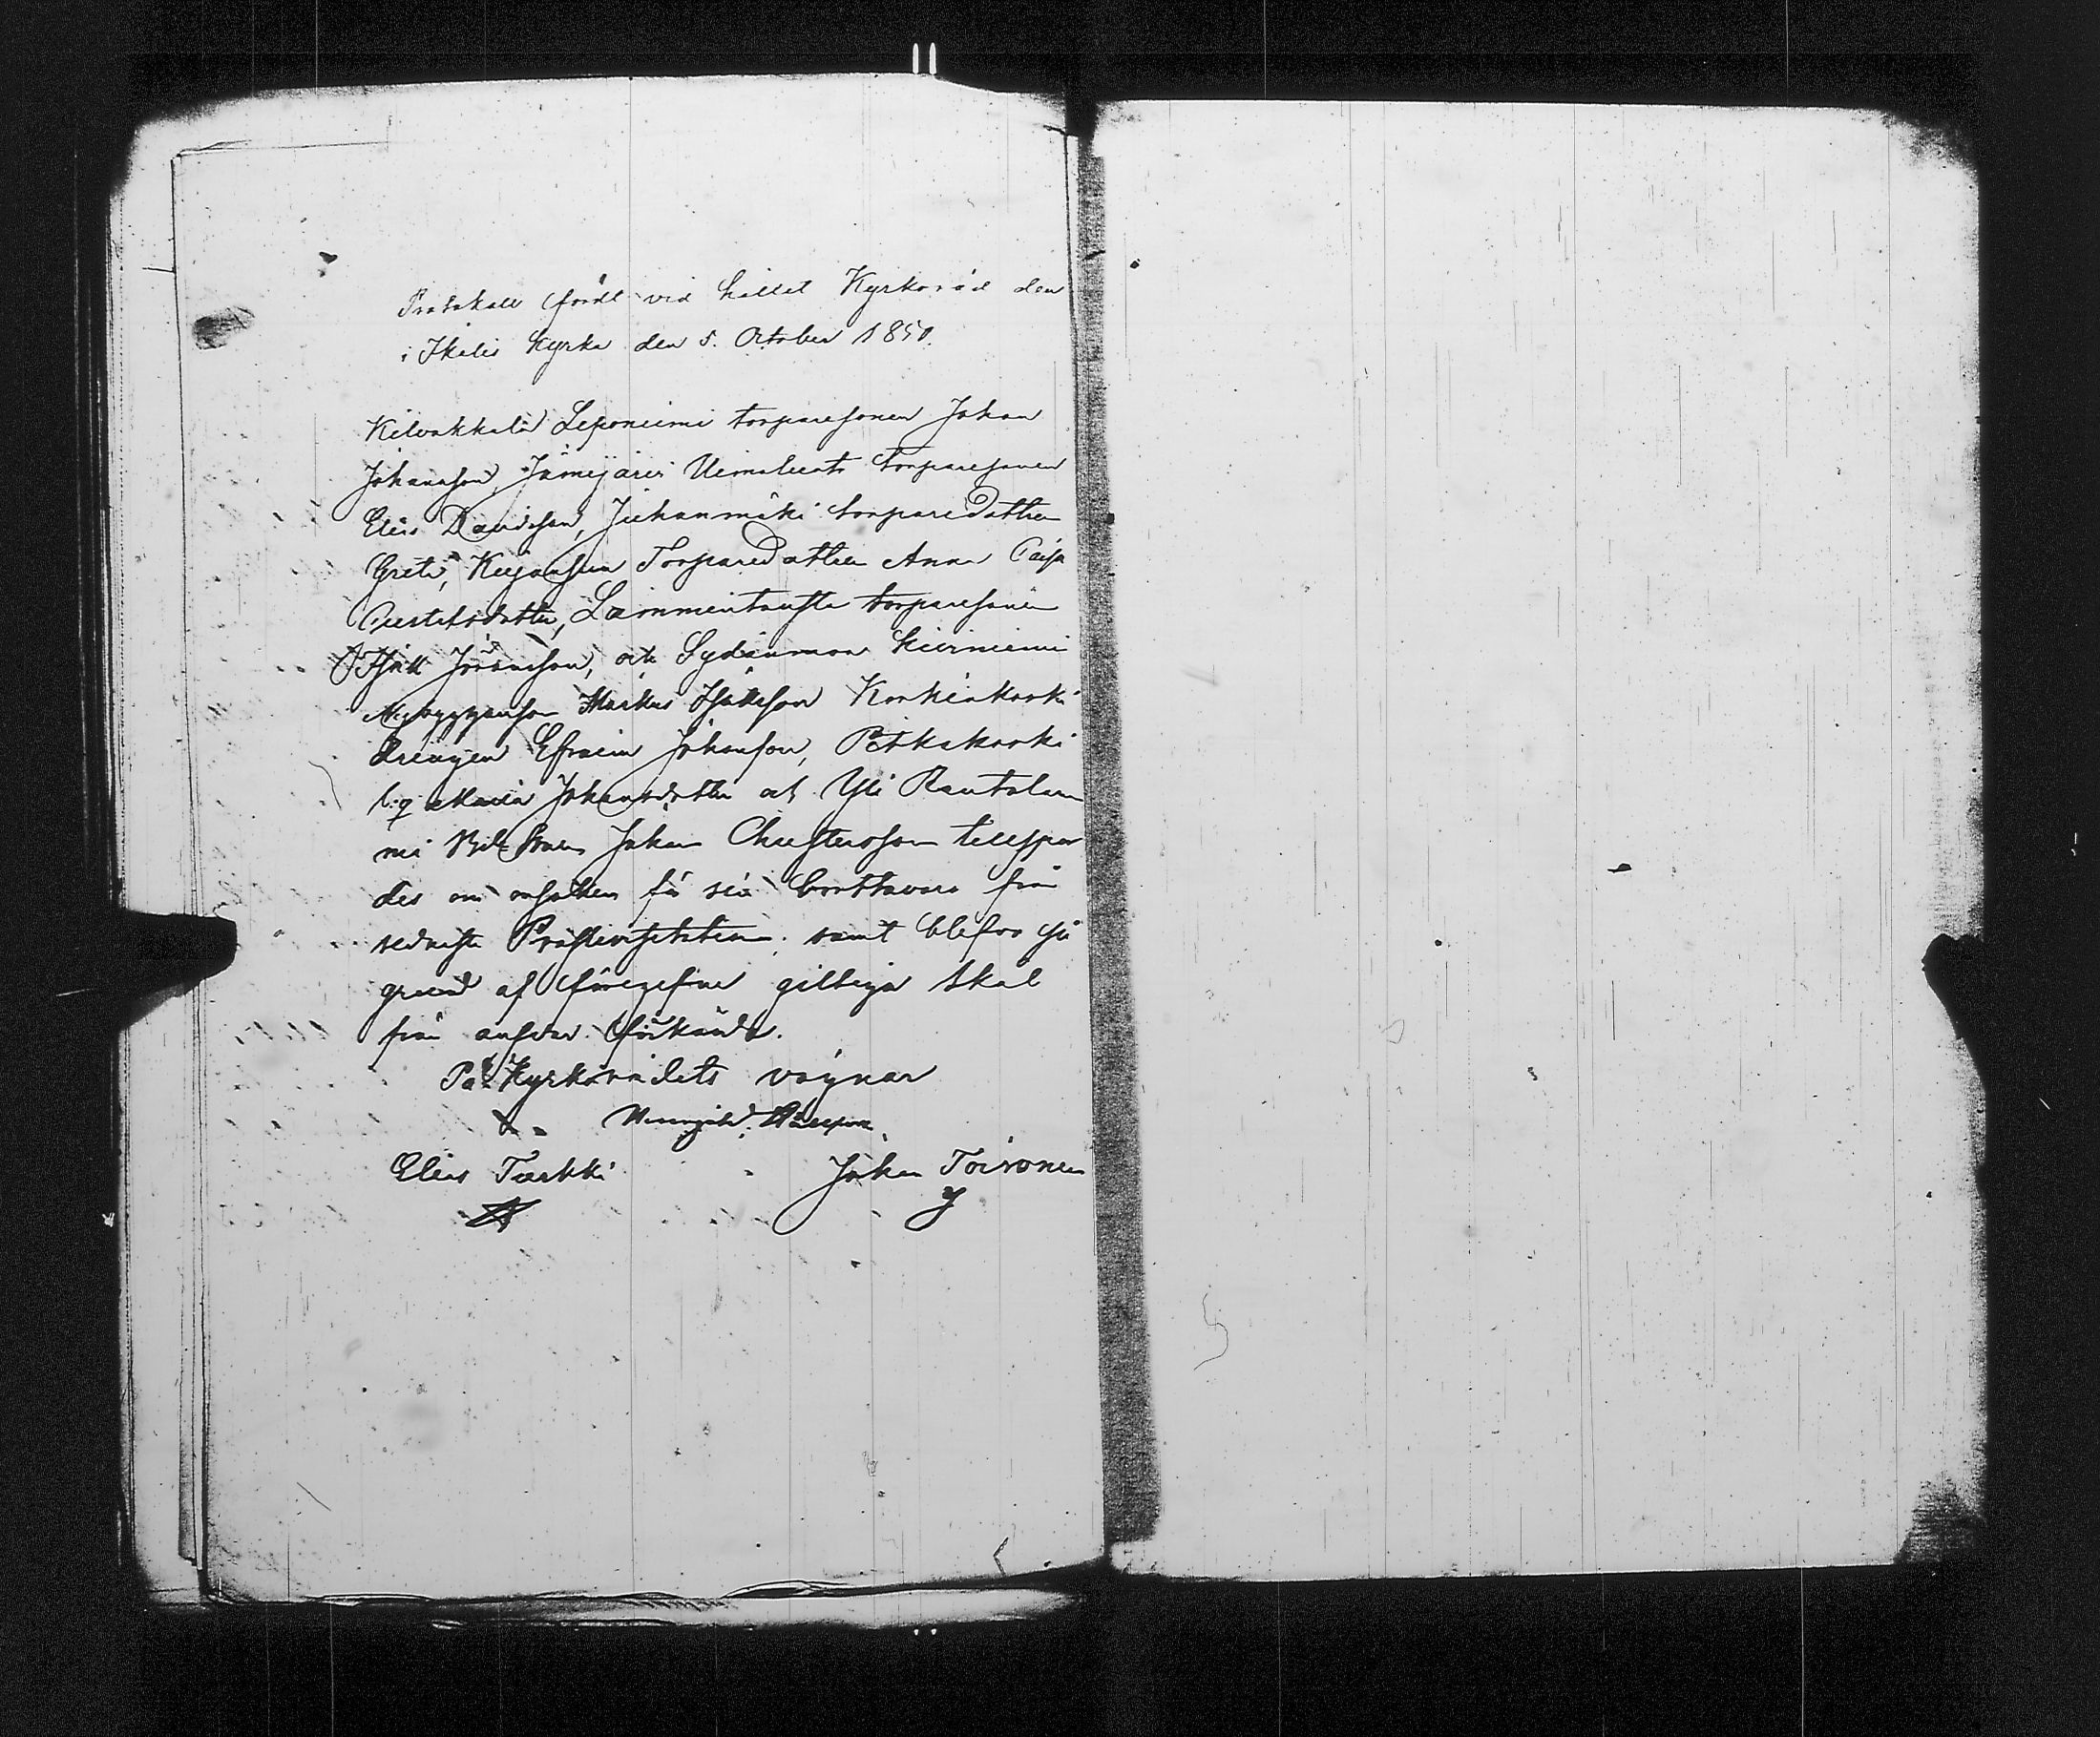 Protokoll fördt vid hållet Kyrkoråd den
i Ikalis Kyrka den 5. October 1850.
Kilvakkala Leponiemi torparesonen Johan
Johansson, Jämijärvi Uimaluoto torparesonen
Elias Davidsson, Juhanmäki torparedottren
Greta, Keijansuu Torparedottren Anna Caisa
Gustafsdotter, Lammentausta torparesonen
Isak Johansson, och Sydänmaa Kiviniemi
Nybyggareson Markus Isaksson Korhiakoski
drengen Efraim Johansson, Petkakoski
Maria Johansdotter och Yli Rantala
Johan tillspor
des om orsaken för sin bortavaro från
sednaste Prostvisitation; samt blefvo på
grund af föregifne giltiga skäl
från ansvar frikända.
På Kyrkorådets vägnar
Elias Turkki Johan Toivonen